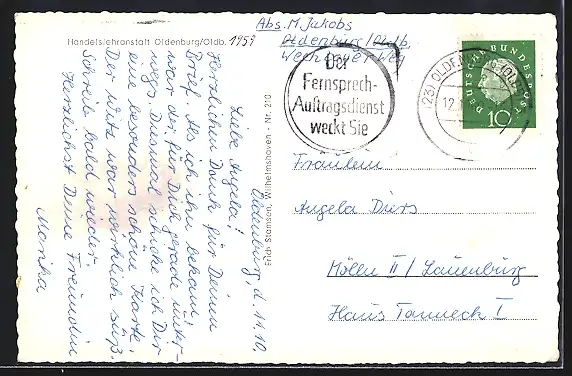 Handelslehranstalt Oldenburg/Oldb.
1959
Oldenburg, d. 11.10.
Liebe Angela!
Herzlichen Dank für Deinen
Brief. Als ich ihn bekam,
war der für Dich gerade unter-
wegs. Diesmal schicke ich Dir
eine besonders schöne Karte.
Der Witz war wirklich süß.
Schreib bald wieder.
Herzlichst Deine Freundin
Monika
Erich Stamsen, Wilhelmshaven - Nr. 210
Abs. M. Jakobs
Oldenburg/Oldb.
Weg
Der
Fernsprech-
Auftragsdienst
weckt Sie
(23) OLDENBURG (OLDB)
12.
DEUTSCHE BUNDESPOST
10
Fräulein
Angela Durs
Mölln II / Lauenburg
Haus Tanneck I